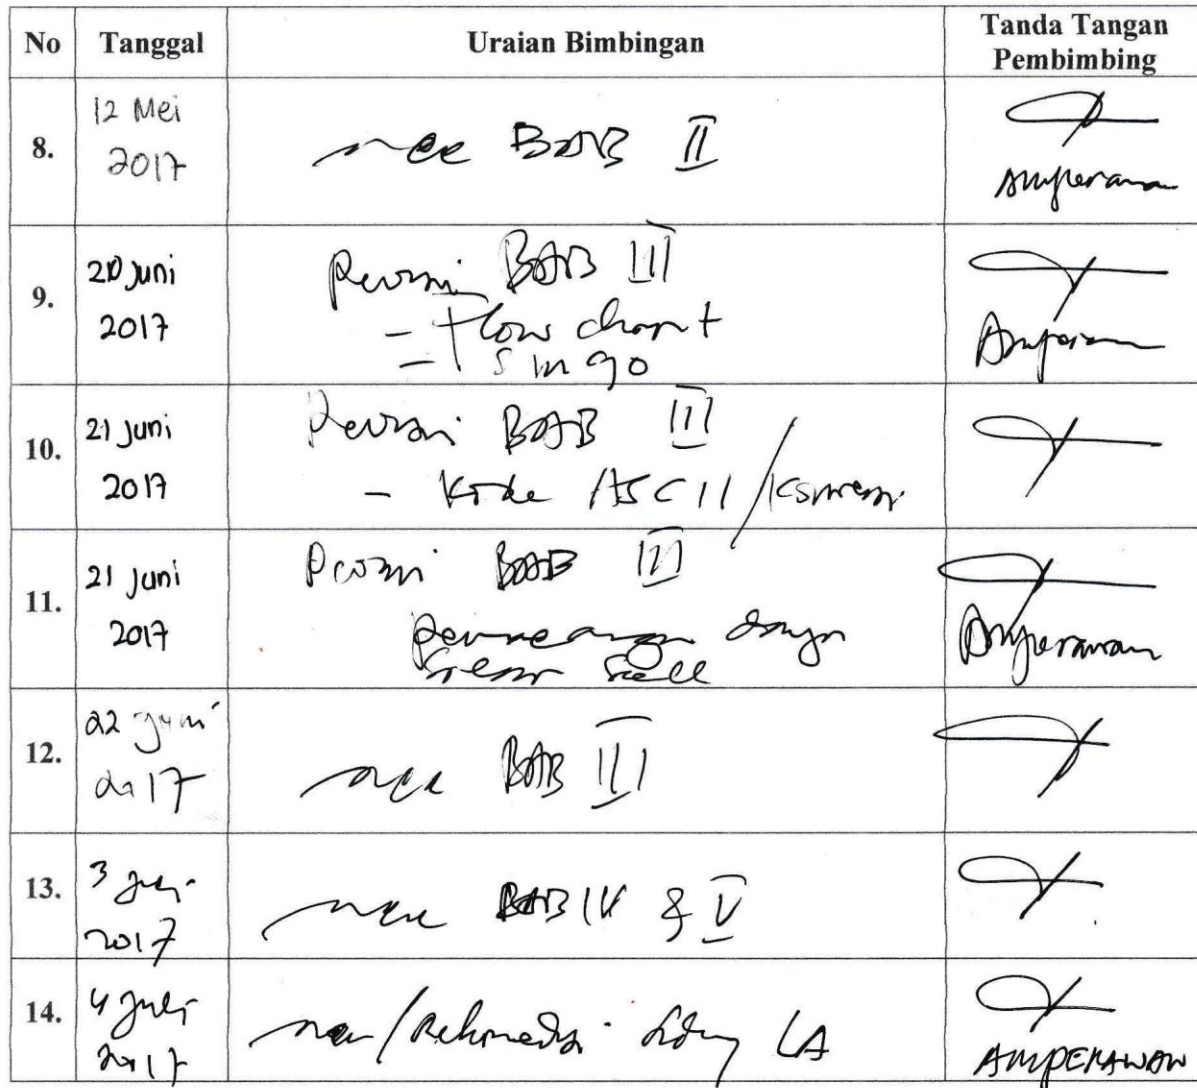 No Tanggal Uraian Bimbingan Tanda Tangan Pembimbing
8. 12 Mei 2017 acc BAB II Amperawan
9. 20 Juni 2017 Revisi BAB III
- Flow chart
-
Amperawan
10. 21 Juni 2017 Revisi BAB III
- Kode ASCII /
11. 21 Juni 2017 Revisi BAB III
Amperawan
12. 22 Juni 2017 acc BAB III
13. 3 Juli 2017 acc BAB IV & V
14. 4 Juli 2017 acc / Rekomendasi Sidang LA AMPERAWAN